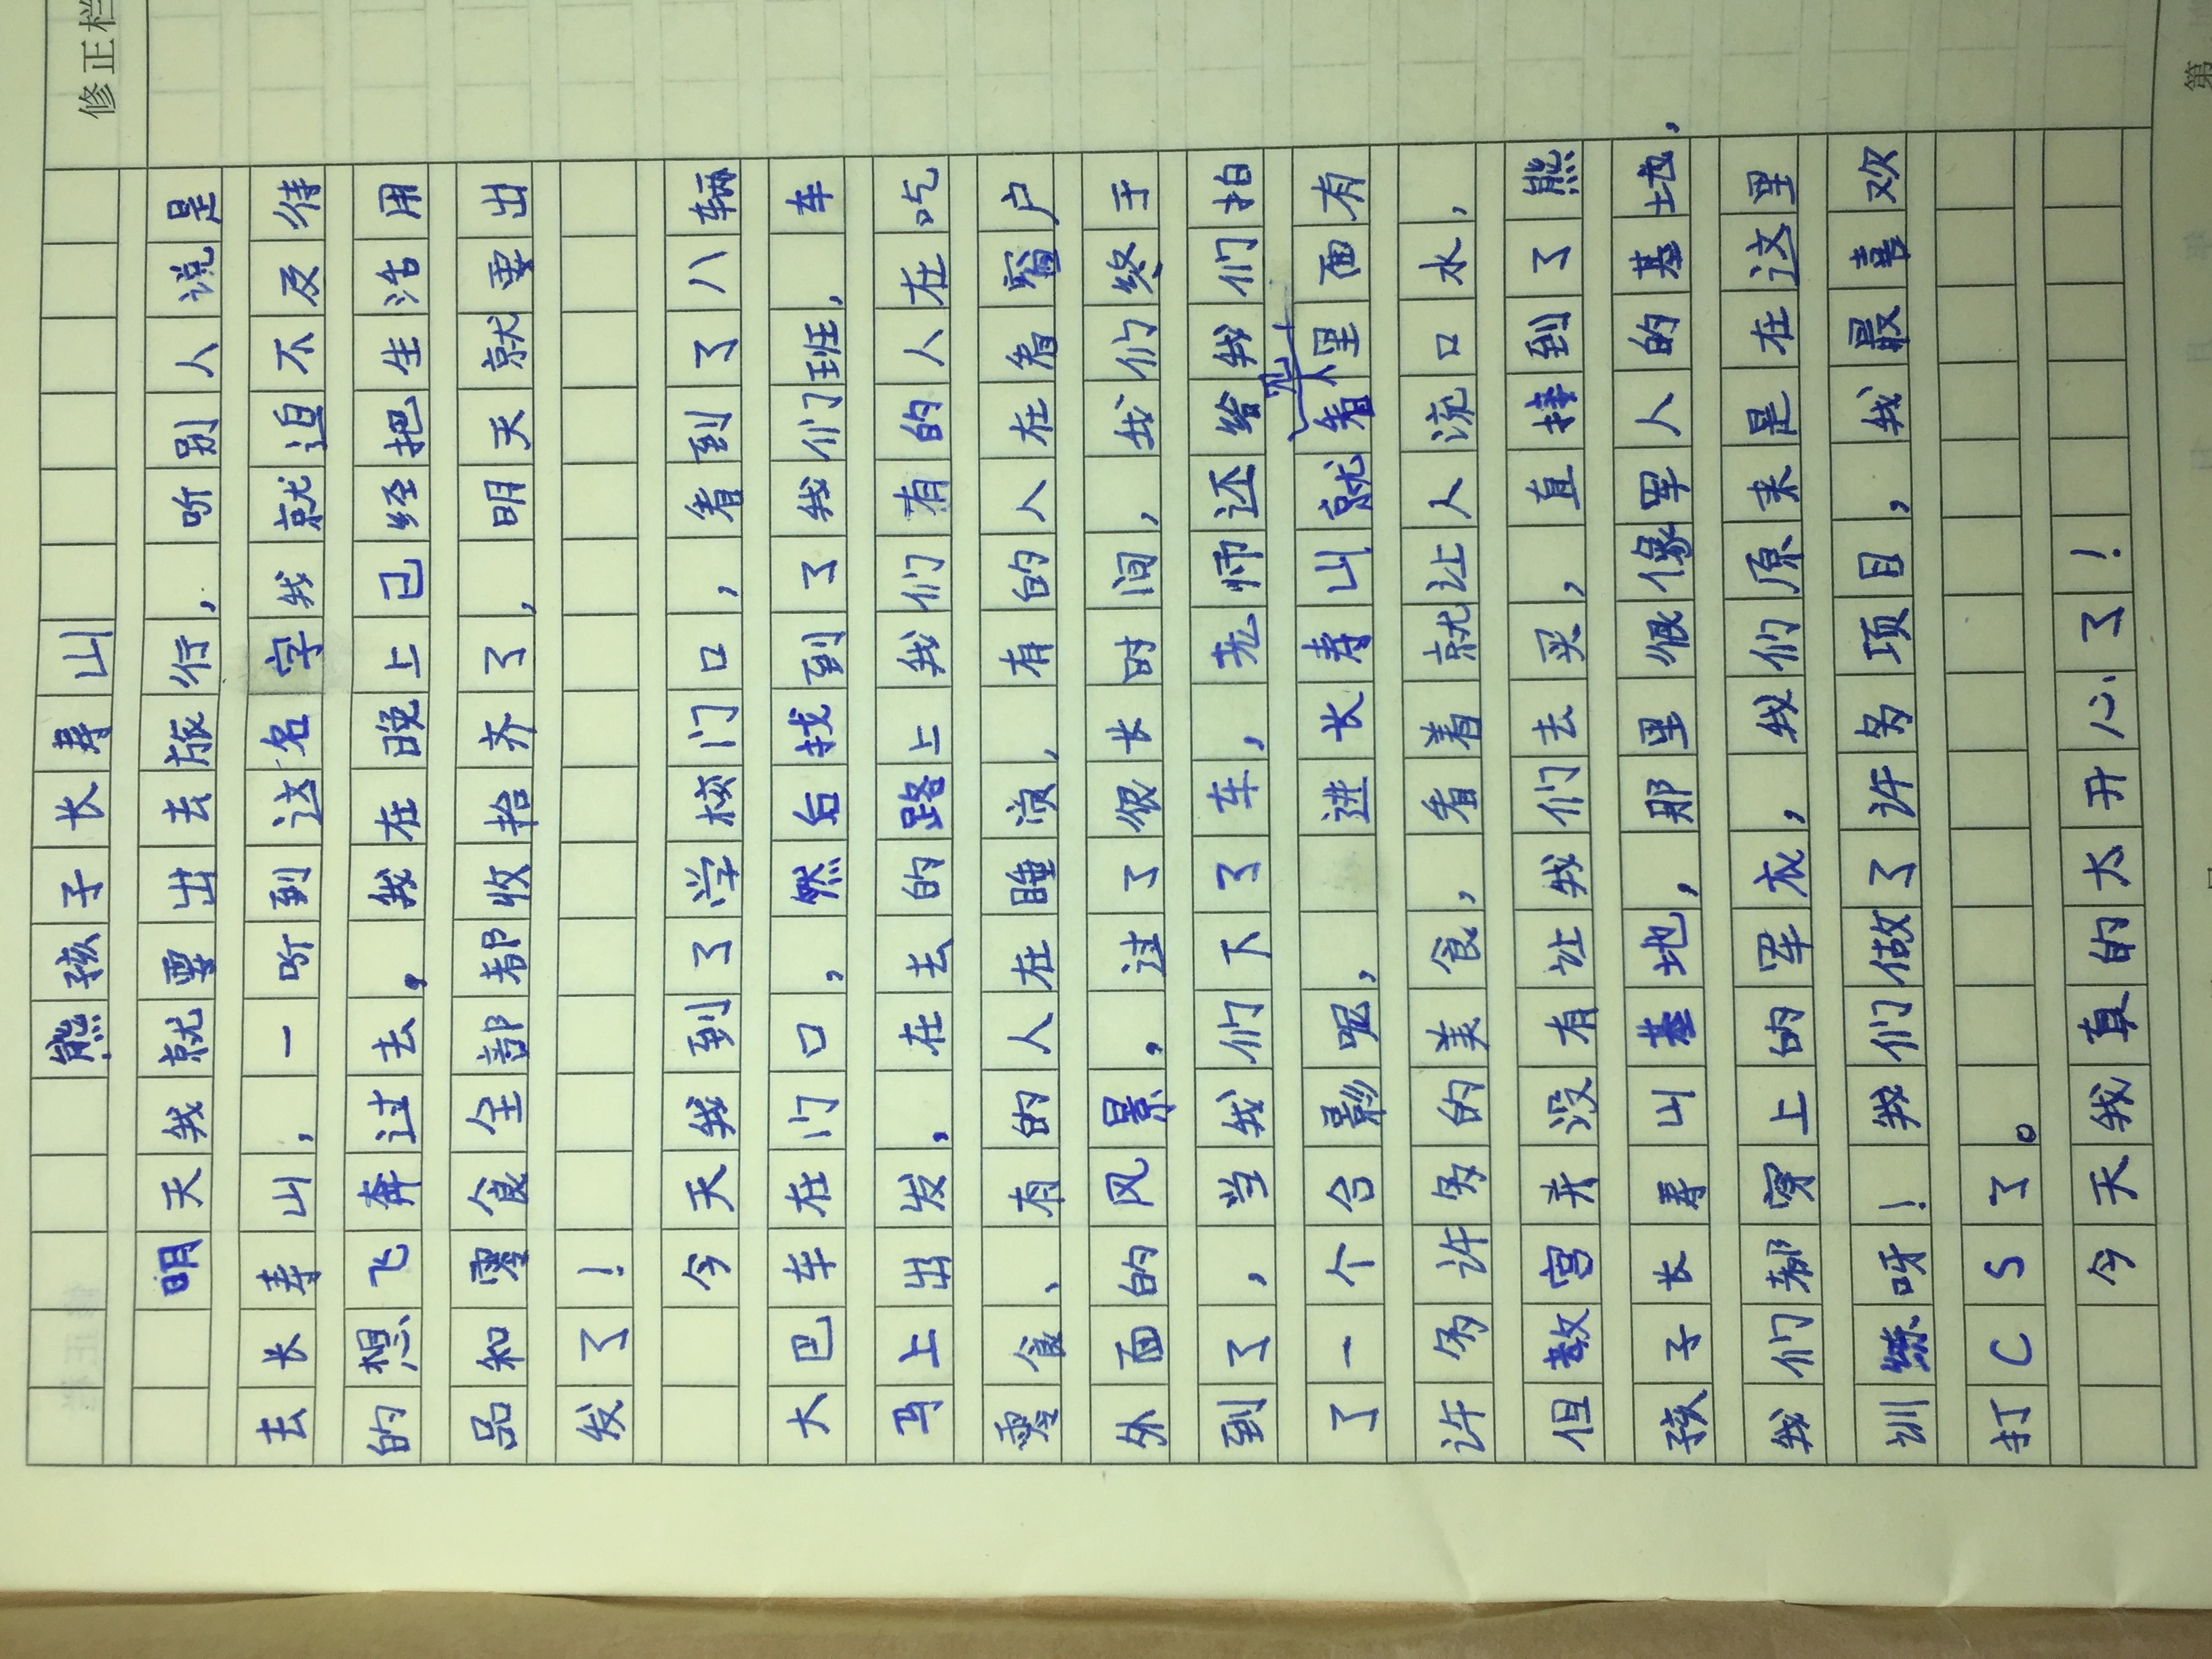 修正栏
熊孩子长寿山
明天我就要出去旅行,听别人说是
去长寿山,一听到这名字我就迫不及待
的想飞奔过去,我在晚上已经把生活用
品和零食全部都收拾齐了,明天就要出
发了!
今天我到了学校门口,看到了八辆
大巴车在门口,然后找到了我们班,车
马上出发,在去的路上我们有的人在吃
零食、有的人在睡觉,有的人在看窗户
外面的风景,过了很长时间,我们终于
到了,当我们下了车,老师还给我们拍
了一个合影呢,进长寿山就看见里面有
许多许多的美食,看着就让人流口水,
但教官并没有让我们去买,直接到了熊
孩子长寿山基地,那里很像军人的基地,
我们都穿上的军衣,我们原来是在这里
训练呀!我们做了许多项目,我最喜欢
打CS了。
今天我真的太开心了!
第